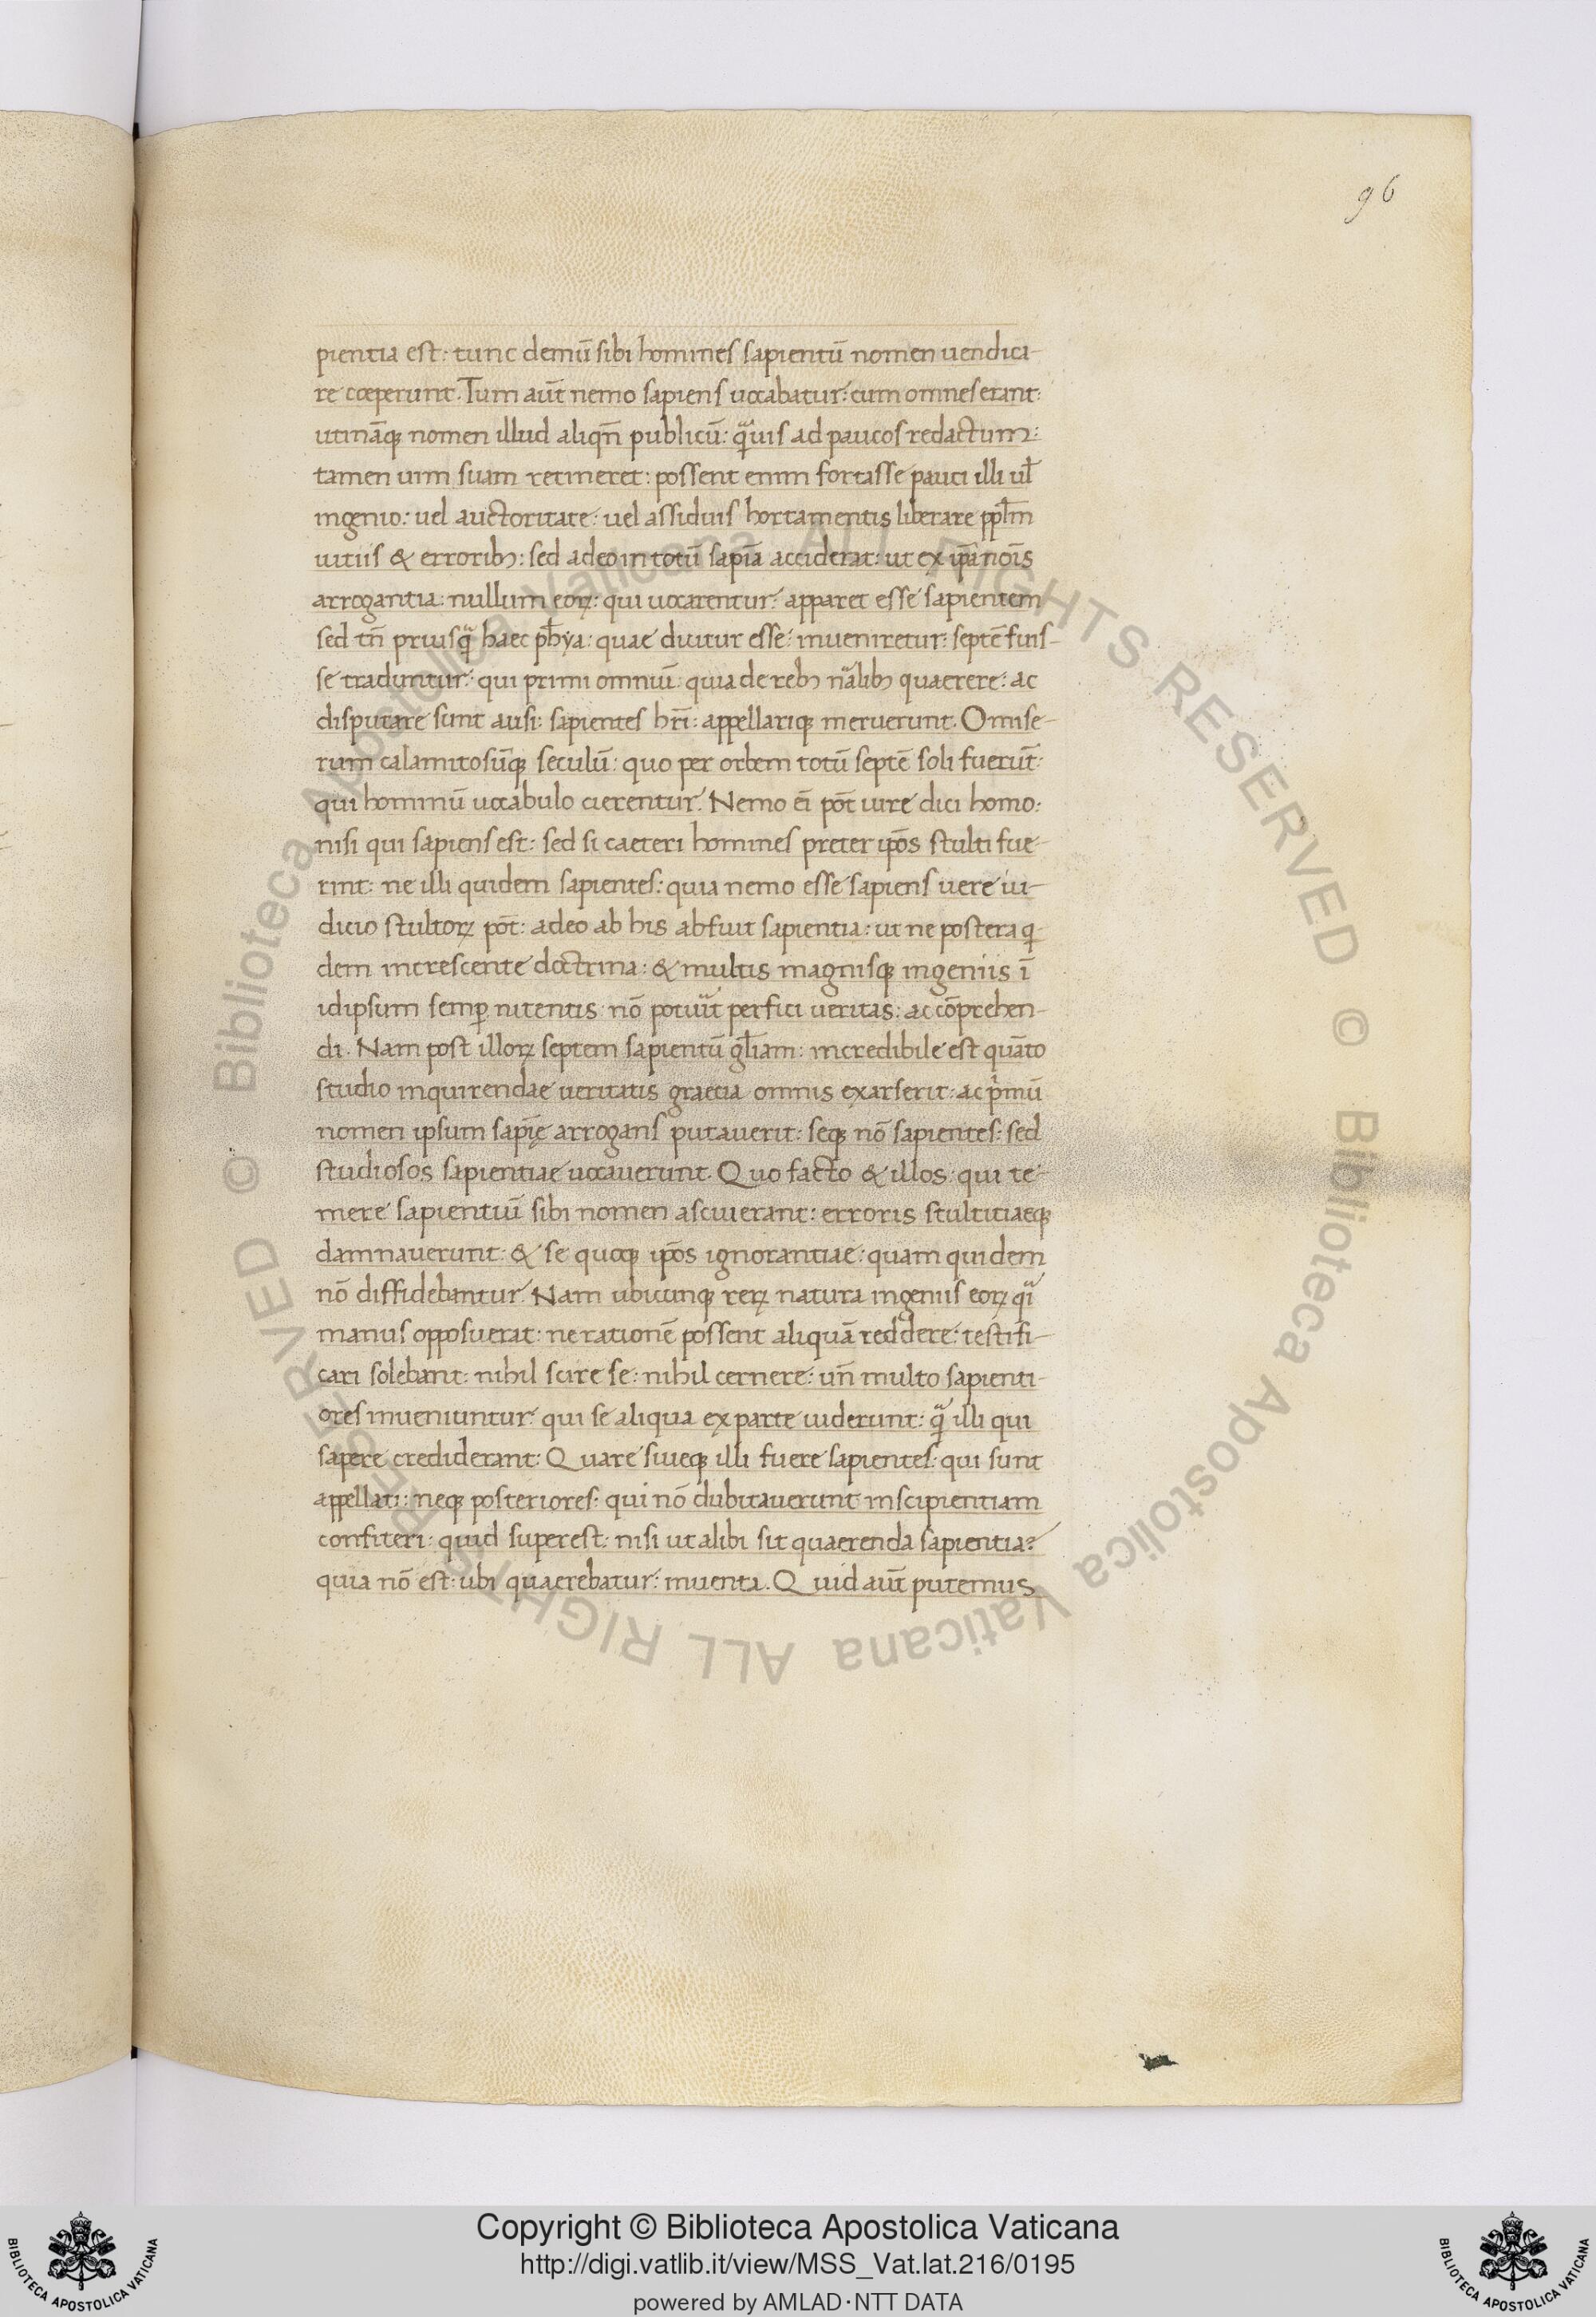 96
pientia est: tunc demū sibi homines sapientū nomen uendica-
re cœperunt. Tum aūt nemo sapiens uocabatur: cum omnes erant:
utināq; nomen illud aliqn̄ publicū: q̄uis ad paucos redactum:
tamen uim suam retineret: possent enim fortasse pauci illi ul̄
ingenio: uel auctoritate: uel assiduis hortamentis liberare ppl̄m
uitiis & errorib;: sed adeo in totū sapīa acciderat: ut ex ip̄a noīs
arrogantia: nullum eoꝝ: qui uocarentur: apparet esse sapientem
sed tn̄ priusq̄ haec ph̄ya: quae dicitur esse: inueniretur: septē fuis-
se traduntur: qui primi omniū: quia de reb; nālib; quaerere: ac
disputare sunt ausi: sapientes hr̄i: appellariq; meruerunt. O mise-
rum calamitosūq; seculū: quo per orbem totū septē soli fuerūt:
qui hominū uocabulo cierentur. Nemo eī pōt iure dici homo:
nisi qui sapiens est: sed si caeteri homines preter ip̄os stulti fue-
rint: ne illi quidem sapientes: quia nemo esse sapiens uere iu-
dicio stultoꝝ pōt: adeo ab his abfuit sapientia: ut ne postera q-
dem increscente doctrina: & multis magnisq; ingeniis ī
idipsum semꝑ nitentis nō potuūt perfici ueritas: ac cōprehen-
di. Nam post illoꝝ septem sapientū gl̄iam: incredibile est quāto
studio inquirendae ueritatis graecia omnis exarserit: ac pͥmū
nomen ipsum sapīę arrogans putauerit: seq; nō sapientes: sed
studiosos sapientiae uocauerunt. Quo facto & illos: qui te-
mere sapientiū sibi nomen asciuierant: erroris stultitiaeq;
damnauerunt: & se quoq; ip̄os ignorantiae: quam quidem
nō diffidebantur. Nam ubicunq; reꝝ natura ingeniis eoꝝ q̄i
manus opposuerat: ne rationē possent aliquā reddere: testifi-
cari solebant: nihil scire se: nihil cernere: un̄ multo sapienti-
ores inueniuntur: qui se aliqua ex parte uiderunt: q̄ illi qui
sapere crediderant: Quare siueq; illi fuere sapientes: qui sunt
appellati: neq; posteriores: qui nō dubitauerunt inscipientiam
confiteri: quid superest: nisi ut alibi sit quaerenda sapientia?
quia nō est: ubi quaerebatur: inuenta. Quid aūt putemus
© Biblioteca Apostolica Vaticana ALL RIGHTS RESERVED © Biblioteca Apostolica Vaticana ALL RIGHTS RESERVED
Copyright © Biblioteca Apostolica Vaticana
http://digi.vatlib.it/view/MSS_Vat.lat.216/0195
powered by AMLAD·NTT DATA
BIBLIOTECA APOSTOLICA VATICANA
BIBLIOTECA APOSTOLICA VATICANA